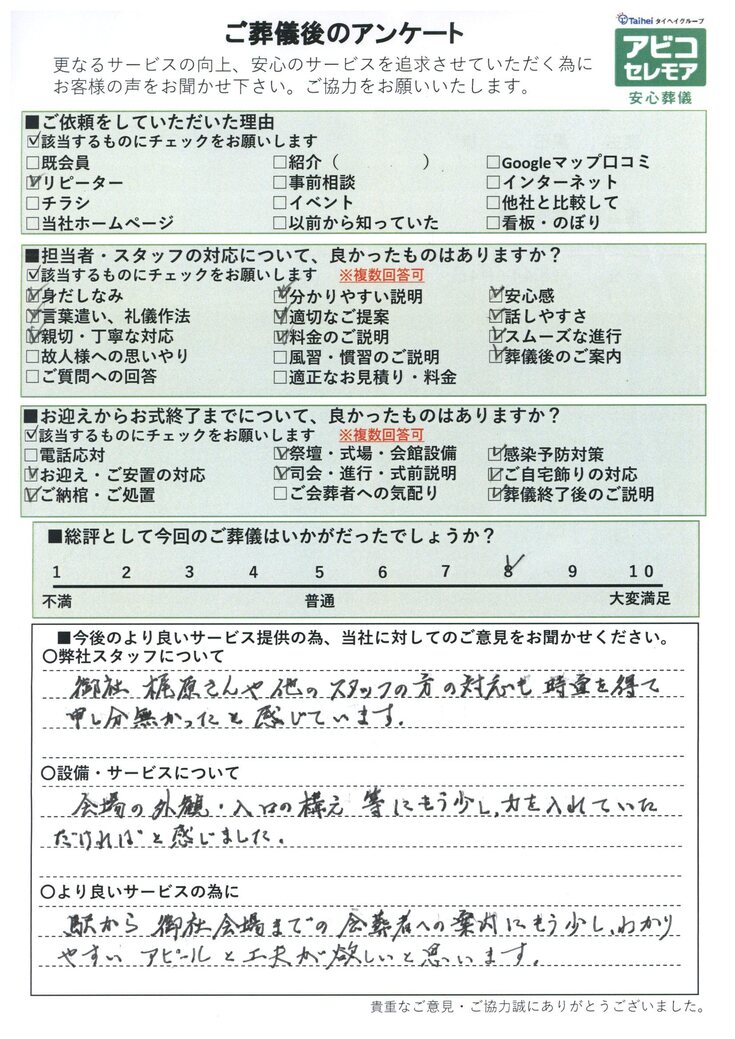 ご葬儀後のアンケート
Taihei タイヘイグループ
アビコ
セレモア
安心葬儀
更なるサービスの向上、安心のサービスを追求させていただく為に
お客様の声をお聞かせ下さい。ご協力をお願いいたします。
■ご依頼をしていただいた理由
☑該当するものにチェックをお願いします
□既会員 □紹介（　　　　） □Googleマップ口コミ
☑リピーター □事前相談 □インターネット
□チラシ □イベント □他社と比較して
□当社ホームページ □以前から知っていた □看板・のぼり
■担当者・スタッフの対応について、良かったものはありますか？
☑該当するものにチェックをお願いします ※複数回答可
☑身だしなみ ☑分かりやすい説明 ☑安心感
☑言葉遣い、礼儀作法 ☑適切なご提案 ☑話しやすさ
☑親切・丁寧な対応 ☑料金のご説明 ☑スムーズな進行
□故人様への思いやり □風習・慣習のご説明 ☑葬儀後のご案内
□ご質問への回答 □適正なお見積り・料金
■お迎えからお式終了までについて、良かったものはありますか？
☑該当するものにチェックをお願いします ※複数回答可
□電話応対 ☑祭壇・式場・会館設備 ☑感染予防対策
☑お迎え・ご安置の対応 ☑司会・進行・式前説明 ☑ご自宅飾りの対応
☑ご納棺・ご処置 □ご会葬者への気配り ☑葬儀終了後のご説明
■総評として今回のご葬儀はいかがだったでしょうか？
1 2 3 4 5 6 7 8 9 10
不満 普通 大変満足
■今後のより良いサービス提供の為、当社に対してのご意見をお聞かせください。
○弊社スタッフについて
御社 梶原さんや他のスタッフの方の対応も 時宜を得て
申し分無かったと感じています.
○設備・サービスについて
会場の外観・入口の構え 等にもう少し、力を入れていた
だければと感じました。
○より良いサービスの為に
駅から 御社会場までの 会葬者への案内にもう少し、わかり
やすい アピールと工夫が欲しいと思います。
貴重なご意見・ご協力誠にありがとうございました。